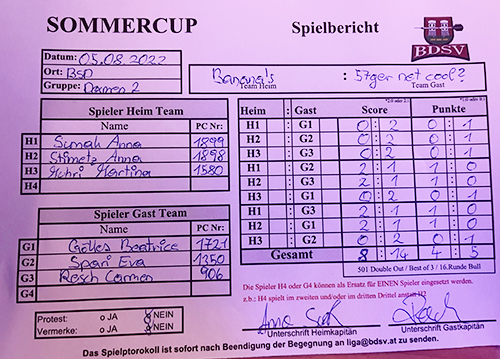 SOMMERCUP Spielbericht
BDSV
Datum: 05.08.2022
Ort: BSD
Gruppe: Damen 2
Banana's : 57ger net cool?
Team Heim Team Gast
Spieler Heim Team
Name PC Nr:
H1 Anna 1899
H2 Stimetz Anna 1898
H3 Martina 1580
H4
Spieler Gast Team
Name PC Nr:
G1 Gölles Beatrice 1721
G2 Spari Eva 1350
G3 Resch Carmen 906
G4
Heim : Gast Score Punkte
H1 : G1 0 : 2 0 : 1
H2 : G2 0 : 2 0 : 1
H3 : G3 0 : 2 0 : 1
H2 : G1 2 : 1 1 : 0
H3 : G2 2 : 1 1 : 0
H1 : G3 0 : 2 0 : 1
H3 : G1 2 : 1 1 : 0
H2 : G3 2 : 1 1 : 0
H3 : G2 0 : 2 0 : 1
Gesamt 8 : 14 4 : 5
501 Double Out / Best of 3 / 16.Runde Bull
Die Spieler H4 oder G4 können als Ersatz für EINEN Spieler eingesetzt werden.
z.b.: H4 spielt im zweiten und/oder im dritten Drittel anstatt H3
Protest: o JA NEIN
Vermerke: o JA NEIN
Unterschrift Heimkapitän Unterschrift Gastkapitän
Das Spielptorokoll ist sofort nach Beendigung der Begegnung an liga@bdsv.at zu senden.